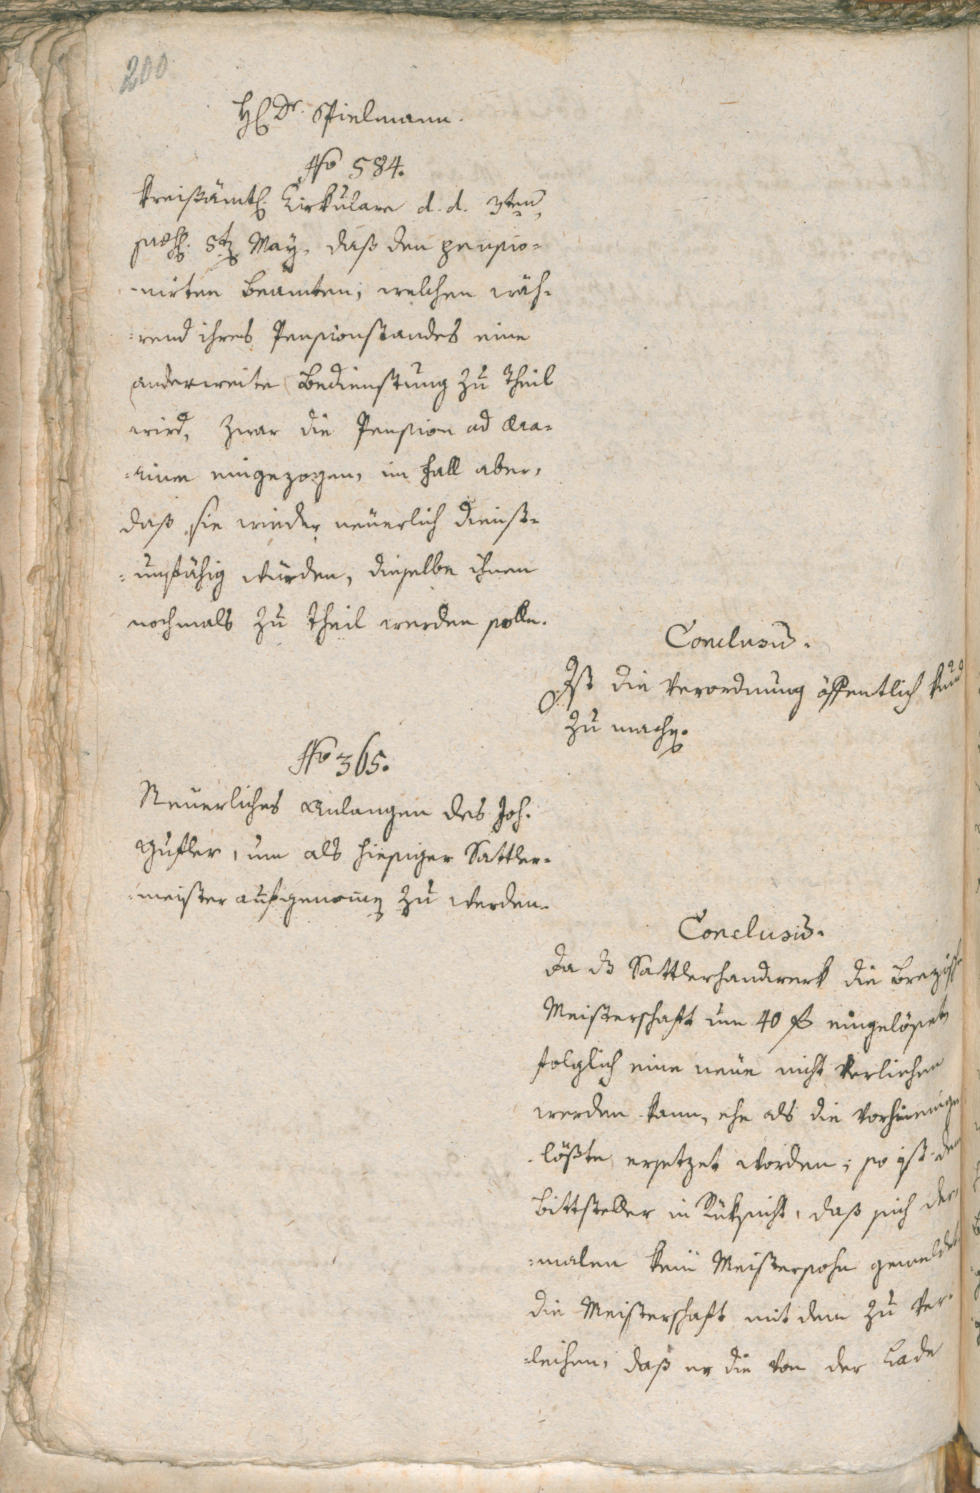 200
H Dr. Spielmann.
No 584.
Kreißämtl. Zirkulare d. d. 3ten,
May, daß den pensio=
=nirten Beamten, welchen wäh=
=rend ihres Pensionstandes eine
anderweite Bedienstung zu Theil
wird, zwar die Pension ad Aera=
=rium eingezogen, im Fall aber,
daß sie wieder neuerlich dienst=
=unfähig würden, dieselbe ihnen
nochmals zu Theil werden solle.
Conclusum.
Ist die Verordnung öffentlich kund
zu machen.
No 365.
Neuerliches Anlangen des Joh.
Gufler, um als hiesiger Sattler=
=meister aufgenommen zu werden.
Conclusum.
Da das Sattlerhandwerk die
Meisterschaft um 40 f eingelöset,
folglich eine neue nicht verliehen
werden kann, ehe als die vorhin einge
lößte ersetzet worden; so ist dem
Bittsteller in Rüksicht, daß sich der=
=malen kein Meistersohn gemeldet
die Meisterschaft mit dem zu ver=
=leihen, daß er die von der Lade